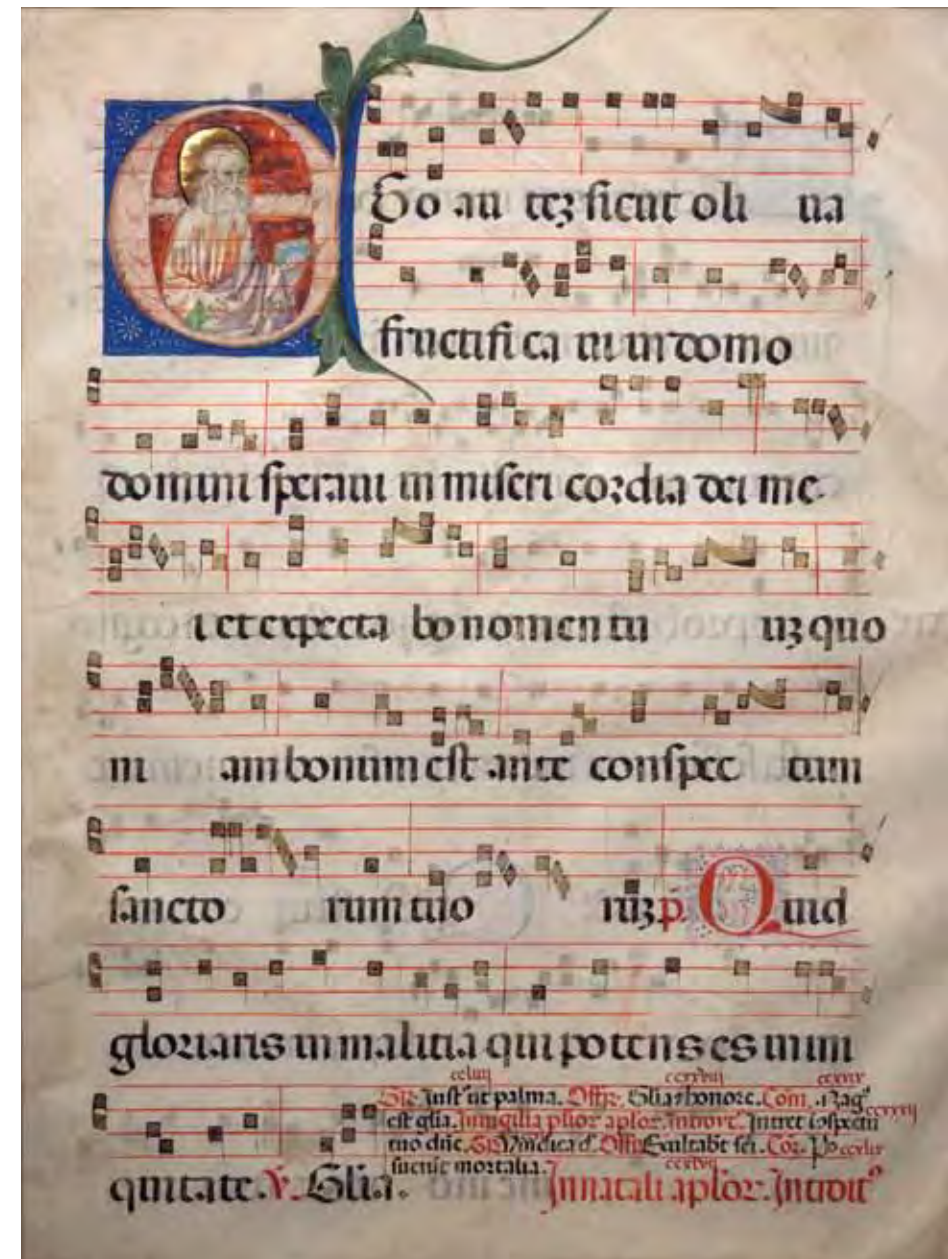 Ego au tez sicut oli ua
fructifi ca ui in domo
domini speraui in miseri cordia dei me
i et expecta bo nomen tu uz quo
ni am bonum est ante conspec tum
sancto rum tuo ruz p̄. Quid
gloriaris in malitia qui potens es in ini
Gr. Iust' ut palma. Offr̄. Gl̄ia et honore. Com.
est gl̄ia. In uigilia plior aplor. Introit'. Intret
tuo dn̄e. Gr. Vindica d. Offr̄. Exultab̄t sc̄i. Co. Po
suerut mortalia.
quitate. V. Gl̄ia. In natali aplor. Introit'